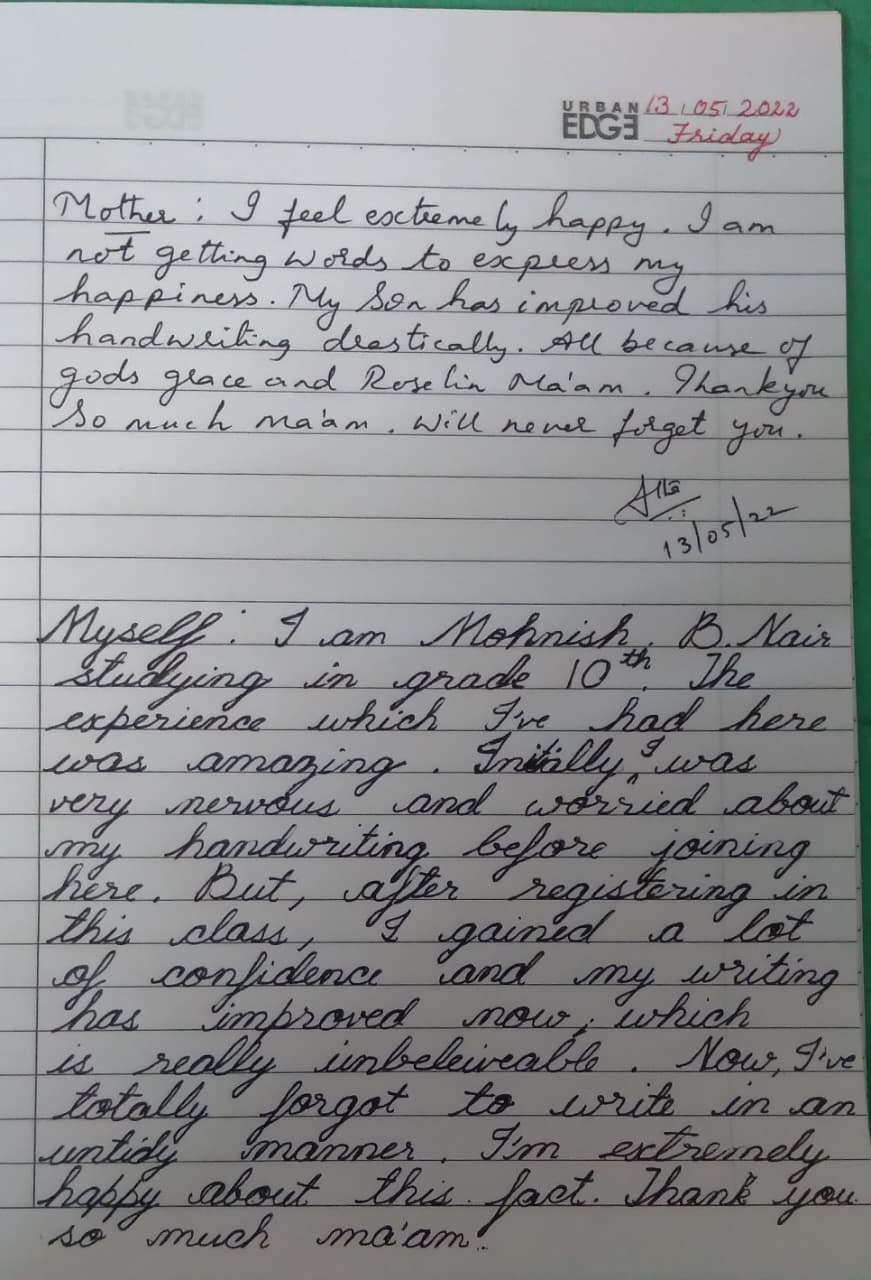 URBAN EDGE 13/05/2022
Friday
Mother : I feel extremely happy. I am
not getting words to express my
happiness. My Son has improved his
handwriting drastically. All because of
gods grace and Roselin Ma'am. Thankyou
So much ma'am. Will never forget you.
13/05/22
Myself : I am Mohnish. B. Nair
studying in grade 10th. The
experience which I've had here
was amazing. Initally I was
very nervous and worried about
my handwriting before joining
here. But, after registering in
this class, I gained a lot
of confidence and my writing
has improved now, which
is really unbeleiveable. Now, I've
totally forgot to write in an
untidy manner. I'm extremely
happy about this fact. Thank you
so much ma'am.